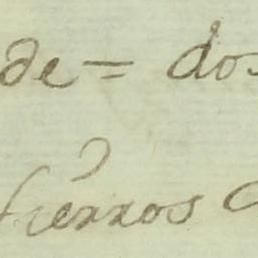 de = dos
fierros